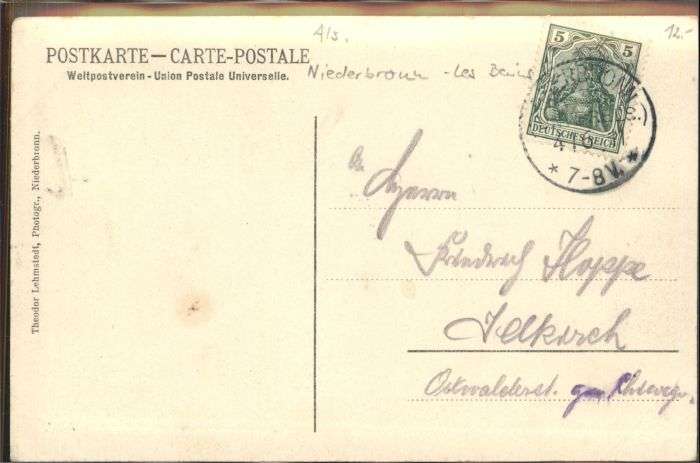 Als.
12.-
POSTKARTE — CARTE-POSTALE
Weltpostverein - Union Postale Universelle.
Niederbronn - Les Bains
5 5
DEUTSCHES REICH
* 7-8 V. *
Theodor Lehmstedt, Photogr., Niederbronn.
An
Herrn
Friedrich Hoppe
Illkirch
Ostwalderst.